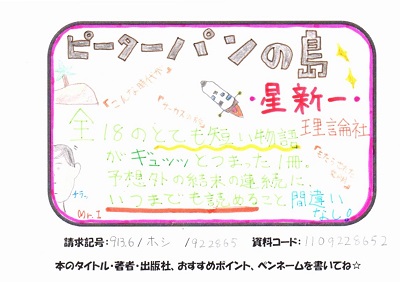 ピーターパンの島
・星新一・
理論社
全18のとても短い物語
がギュッッとつまった1冊。
予想外の結末の連続に、
いつまでも読めること間違い
なし。
チラッ
Mr.I
請求記号:913.6/ホシ/922865 資料コード:1109228652
本のタイトル・著者・出版社、おすすめポイント、ペンネームを書いてね☆